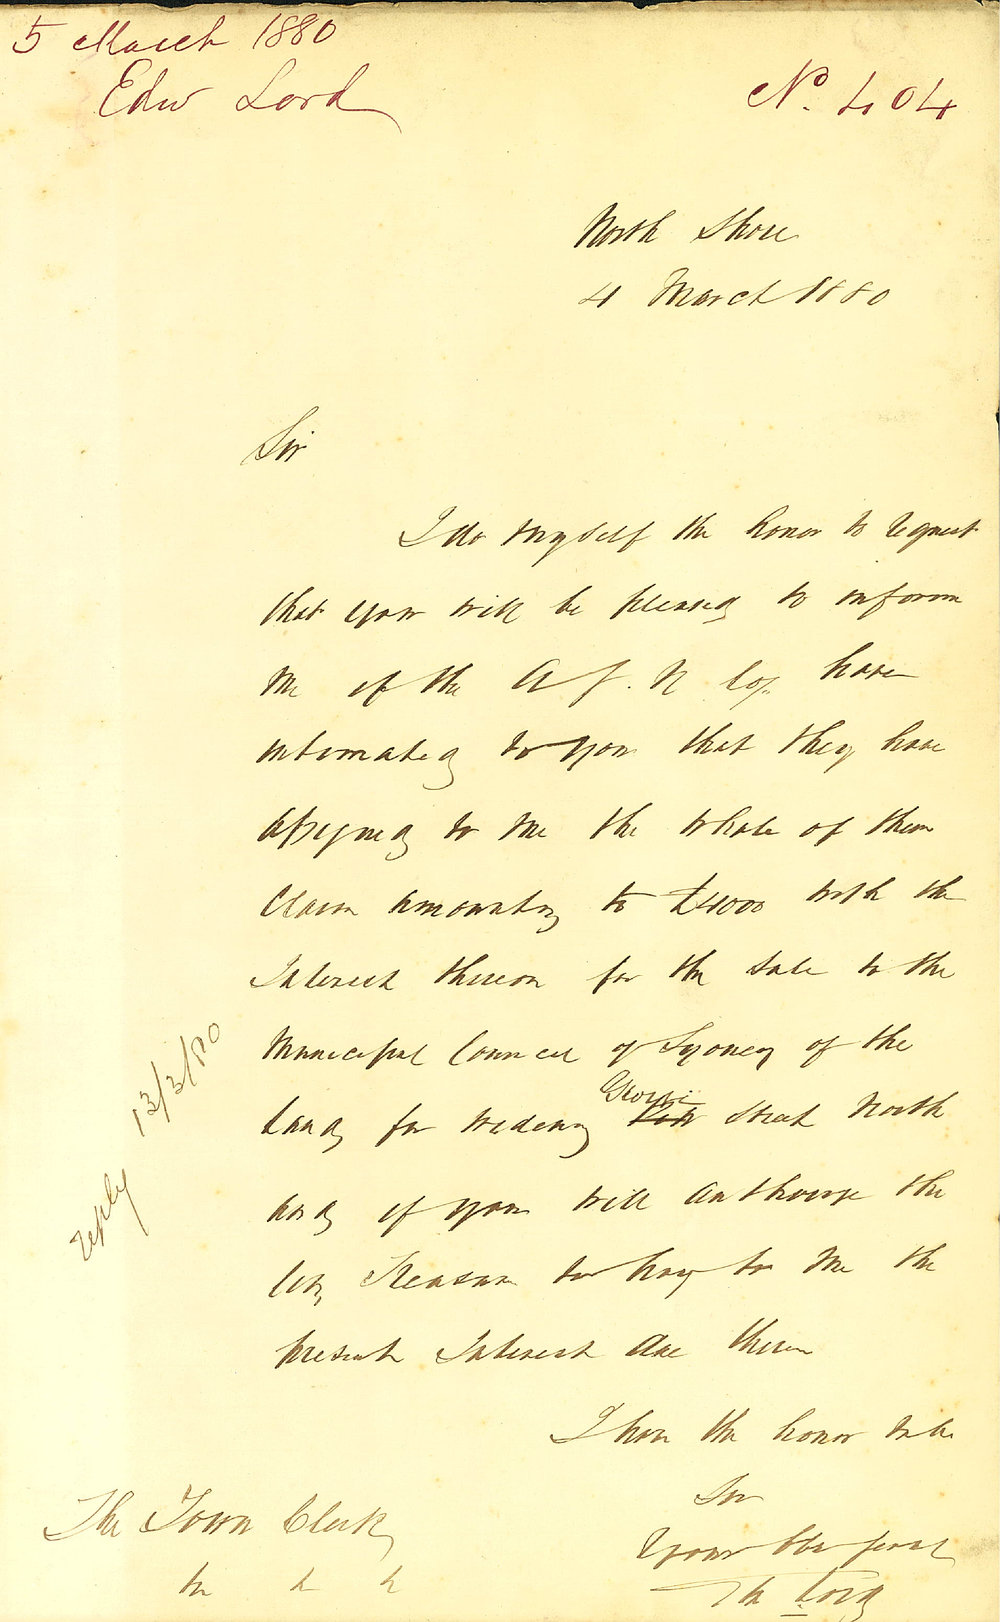 5 March 1880
Edw Lord
No. 404
North Shore
4 March 1880
Sir
I do myself the honor to request
that you will be pleased to inform
me if the A S. N Coy. have
intimated to you that they have
assigned to me the whole of their
Claim amounting to £4000 with the
Interest thereon for the sale to the
Municipal Council of Sydney of the
Land for widening George Street North
and if you will authorise the
City Treasurer to pay to me the
present Interest due thereon
I have the honor to be
Sir
Your Obt servt
Lord
The Town Clerk
reply 13/3/80